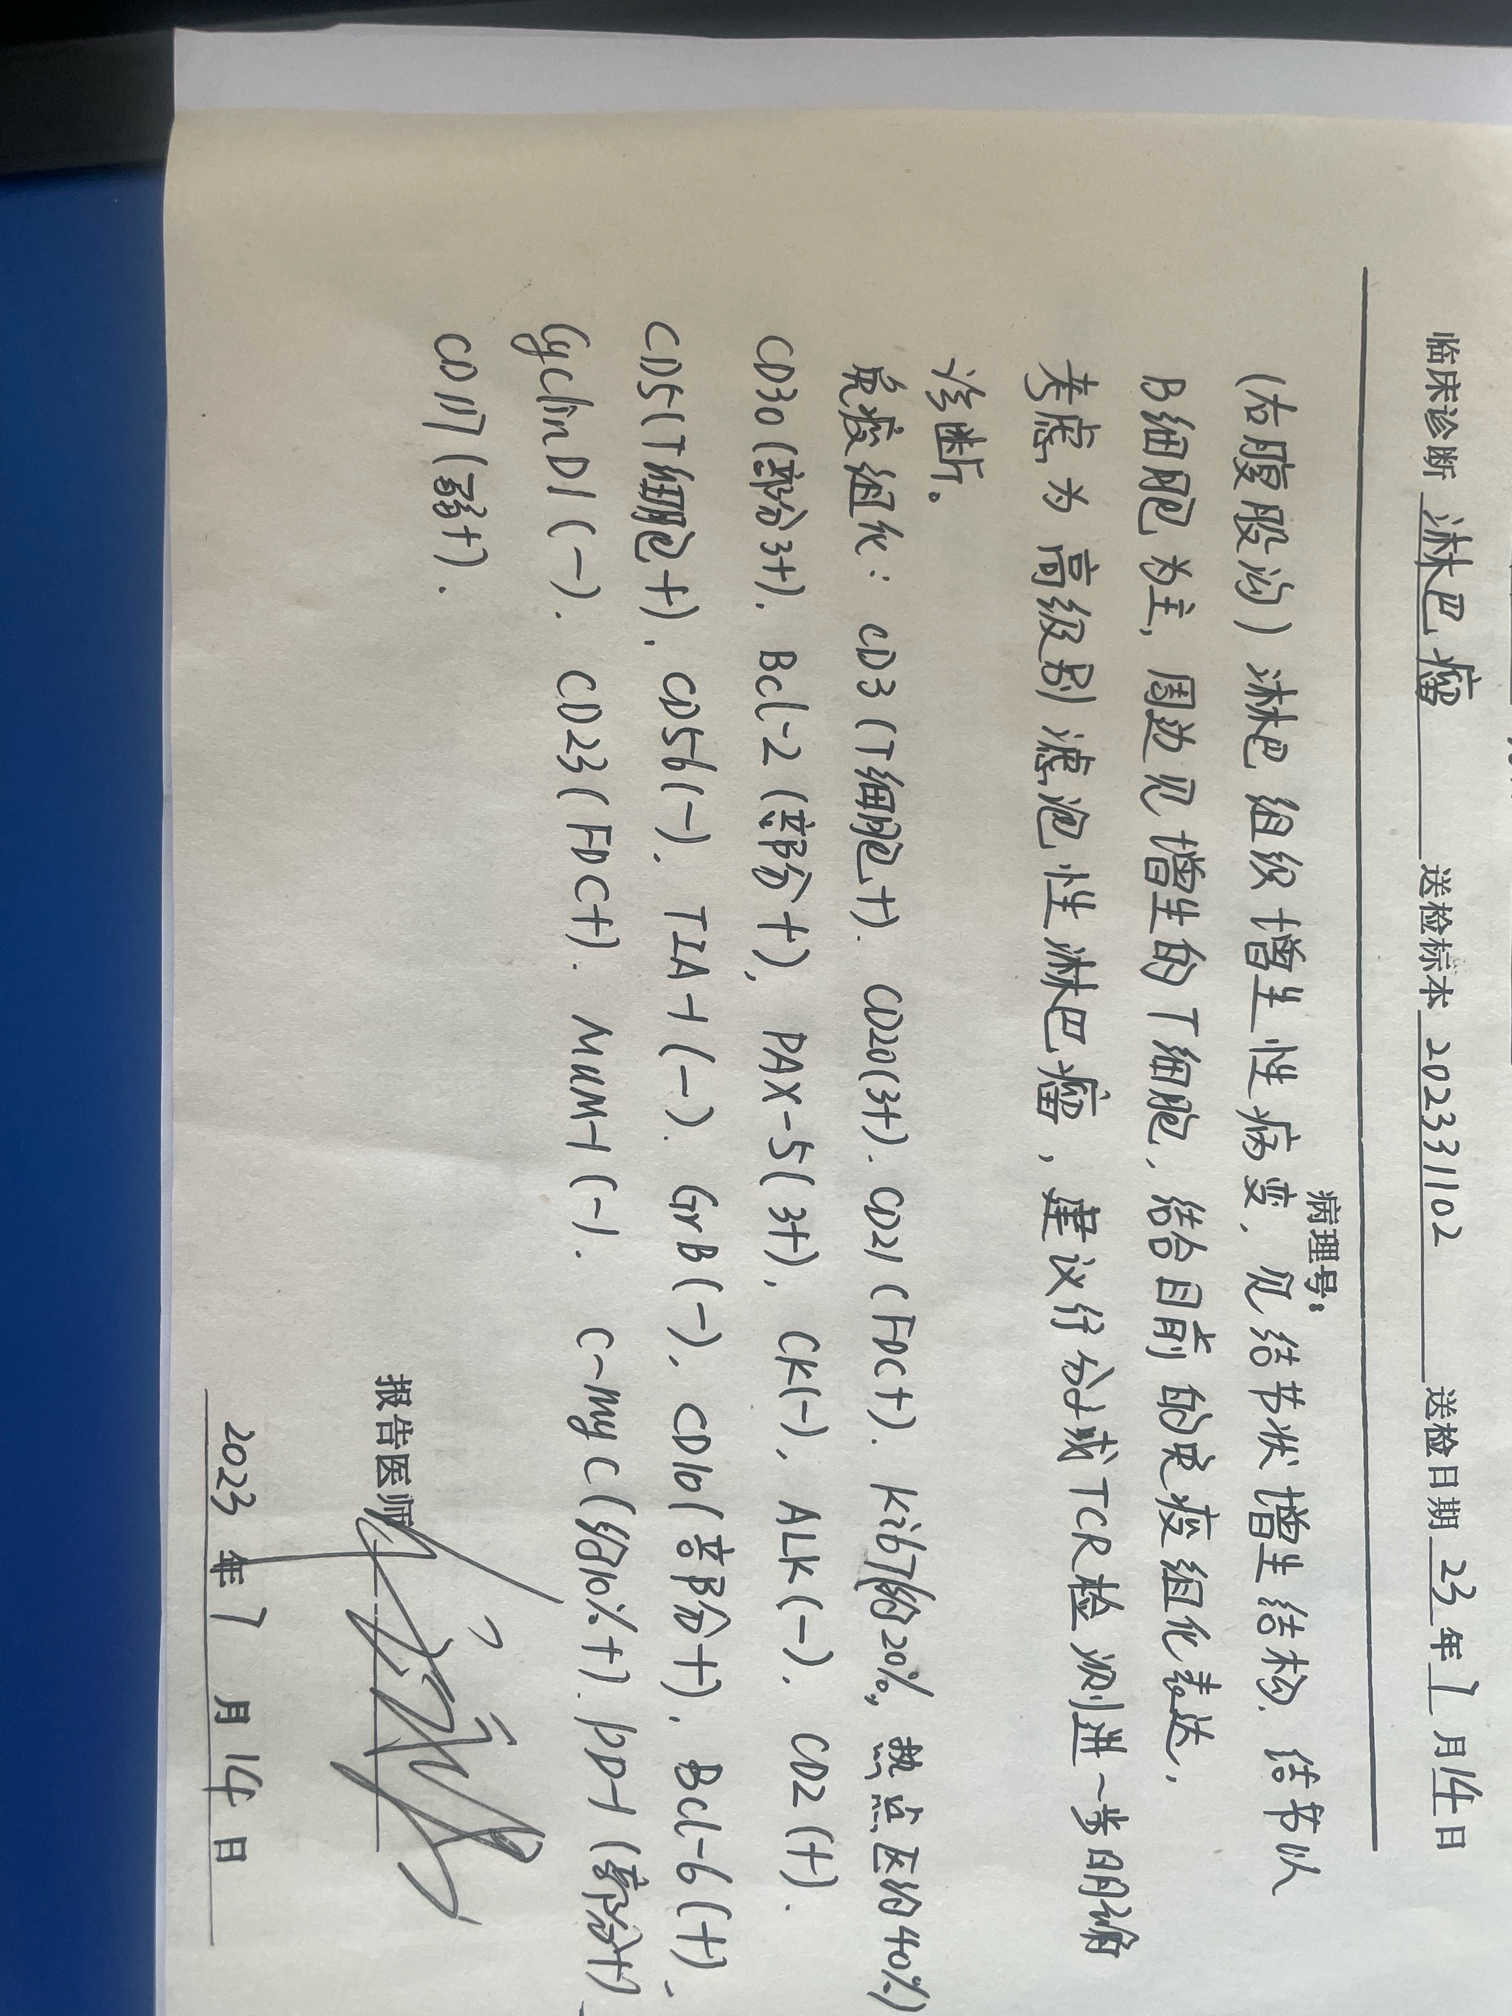 临床诊断 淋巴瘤 送检标本 202331102 送检日期 23 年 7 月 14 日
病理号:
(右腹股沟) 淋巴组织增生性病变, 见结节状增生结构. 结节以
B细胞为主, 周边见增生的T细胞, 结合目前的免疫组化表达,
考虑为高级别滤泡性淋巴瘤, 建议行分子或TCR检测进一步明确
诊断。
免疫组化: CD3 (T细胞+). CD20(3+). CD21 (FDC+). Ki67(约20%, 热点区约40%)
CD30 (部分3+). Bcl-2 (部分+), PAX-5(3+), CK(-), ALK(-). CD2 (+).
CD5(T细胞+). CD56(-). TIA-1(-). GrB(-), CD10(部分+). Bcl-6(+).
CyclinD1(-). CD23(FDC+). MUM-1(-). C-myc(约10%+). PD-1(部分+).
CD117(弱+).
报告医师
2023 年 7 月 14 日